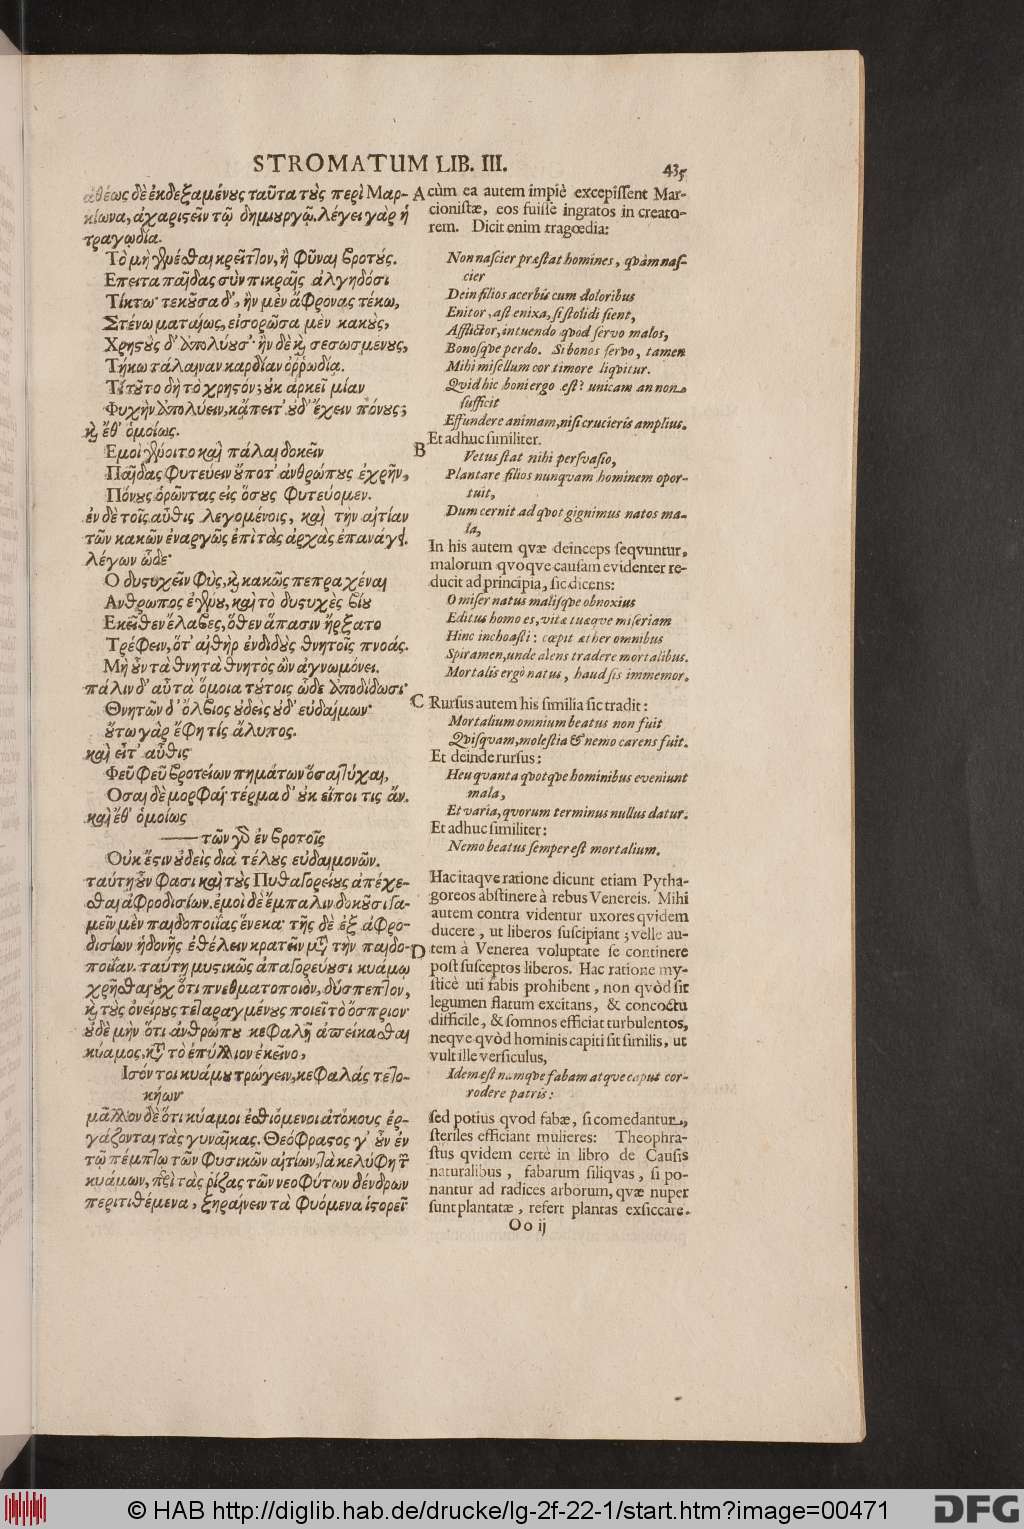 STROMATUM LIB. III. 435
ἀθέως δὲ ἐκδεξαμένους ταῦτα τοὺς περὶ Μαρ-
κίωνα, ἀχαριστεῖν τῷ δημιουργῷ. λέγει γὰρ ἡ
τραγῳδία.
Τὸ μὴ γενέσθαι κρεῖττον, ἢ φῦναι βροτούς.
Επειτα παῖδας σὺν πικραῖς ἀλγηδόσι
Τίκτω· τεκοῦσα δ', ἢν μὲν ἄφρονας τέκω,
Στένω ματαίως, εἰσορῶσα μὲν κακοὺς,
Χρηστοὺς δ' ἀπολύουσ'· ἢν δὲ καὶ σεσωσμένους,
Τήκω τάλαιναν καρδίαν ὀῤῥωδίᾳ.
Τί τοῦτο δὴ τὸ χρηστόν; οὐκ ἀρκεῖ μίαν
Ψυχὴν ἀπολύειν, κᾄπειτ' οὐδ' ἔχειν πόνους;
καὶ ἔθ' ὁμοίως.
Εμοὶ γένοιτο καὶ πάλαι δοκεῖν
Παῖδας φυτεύειν οὔποτ' ἀνθρώπους ἐχρῆν,
Πόνους ὁρῶντας εἰς ὅσους φυτεύομεν.
ἐν δὲ τοῖς αὖθις λεγομένοις, καὶ τὴν αἰτίαν
τῶν κακῶν ἐναργῶς ἐπὶ τὰς ἀρχὰς ἐπανάγει
λέγων ὧδε·
Ο δυστυχεῖν φὺς, καὶ κακῶς πεπραχέναι
Ανθρωπος ἐγένου, καὶ τὸ δυστυχὲς βίου
Εκεῖθεν ἔλαβες, ὅθεν ἅπασιν ἤρξατο
Τρέφειν, ὅτ' αἰθὴρ ἐνδιδοὺς θνητοῖς πνοάς.
Μὴ οὖν τὰ θνητὰ θνητὸς ὢν ἀγνωμόνει.
πάλιν δ' αὖτὰ ὅμοια τούτοις ὧδε ἀποδίδωσι·
Θνητῶν δ' ὄλβιος οὐδεὶς οὐδ' εὐδαίμων·
οὕτω γὰρ ἔφη τίς ἄλυπος.
καὶ εἶτ' αὖθις
Φεῦ φεῦ βροτείων πημάτων ὅσαι τύχαι,
Οσαι δὲ μορφαί· τέρμα δ' οὐκ εἴποι τις ἄν.
καὶ ἔθ' ὁμοίως
—— τῶν γὰρ ἐν βροτοῖς
Οὐκ ἔστιν οὐδεὶς διὰ τέλους εὐδαιμονῶν.
ταύτῃ οὖν φασι καὶ τοὺς Πυθαγορείους ἀπέχε-
σθαι ἀφροδισίων. ἐμοὶ δὲ ἔμπαλιν δοκοῦσι γα-
μεῖν μὲν παιδοποιΐας ἕνεκα· τῆς δὲ ἐξ ἀφρο-
δισίων ἡδονῆς ἐθέλειν κρατεῖν μετὰ τὴν παιδο-
ποιΐαν. ταύτῃ μυστικῶς ἀπαγορεύουσι κυάμῳ
χρῆσθαι οὐχ ὅτι πνευματοποιὸν, δύσπεπτον,
καὶ τοὺς ὀνείρους τεταραγμένους ποιεῖ τὸ ὄσπριον·
οὐδὲ μὴν ὅτι ἀνθρώπου κεφαλῇ ἀπείκασθαι
κύαμος, κατὰ τὸ ἐπύλλιον ἐκεῖνο,
Ισόν τοι κυάμου τρώγειν, κεφαλάς τε το-
κήων·
μᾶλλον δὲ ὅτι κύαμοι ἐσθιόμενοι ἀτόκους ἐρ-
γάζονται τὰς γυναῖκας. Θεόφραστος γ' οὖν ἐν
τῷ πέμπτῳ τῶν φυσικῶν αἰτίων, τὰ κελύφη τῶν
κυάμων, περὶ τὰς ῥίζας τῶν νεοφύτων δένδρων
περιτιθέμενα, ξηραίνειν τὰ φυόμενα ἱστορεῖ·
A cùm ea autem impiè excepissent Mar-
cionistæ, eos fuisse ingratos in creato-
rem. Dicit enim tragœdia:
Non nascier præstat homines, quàm nas-
cier
Dein filios acerbis cum doloribus
Enitor, ast enixa, si stolidi sient,
Afflictor, intuendo qvod servo malos,
Bonosqve perdo. Si bonos servo, tamen
Mihi misellum cor timore liqvitur.
Qvid hic boni ergo est? unicam an non
sufficit
Effundere animam, nisi crucieris amplius.
Et adhuc similiter.
B
Vetus stat nihi persvasio,
Plantare filios nunqvam hominem opor-
tuit,
Dum cernit ad qvot gignimus natos ma-
la,
In his autem qvæ deinceps seqvuntur,
malorum qvoqve causam evidenter re-
ducit ad principia, sic dicens:
O miser natus malisqve obnoxius
Editus homo es, vitæ tuæqve miseriam
Hinc inchoasti: cœpit æther omnibus
Spiramen, unde alens tradere mortalibus.
Mortalis ergò natus, haud sis immemor.
C Rursus autem his similia sic tradit:
Mortalium omnium beatus non fuit
Qvisqvam, molestia & nemo carens fuit.
Et deinde rursus:
Heu qvanta qvotqve hominibus eveniunt
mala,
Et varia, qvorum terminus nullus datur.
Et adhuc similiter:
Nemo beatus semper est mortalium.
Hac itaqve ratione dicunt etiam Pytha-
goreos abstinere à rebus Venereis. Mihi
autem contra videntur uxores qvidem
ducere, ut liberos suscipiant; velle au-
D tem à Venerea voluptate se continere
post susceptos liberos. Hac ratione my-
sticè uti fabis prohibent, non qvòd sit
legumen flatum excitans, & concoctu
difficile, & somnos efficiat turbulentos,
neqve qvòd hominis capiti sit similis, ut
vult ille versiculus,
Idem est namqve fabam atqve caput cor-
rodere patris:
sed potius qvod fabæ, si comedantur,
steriles efficiant mulieres: Theophra-
stus qvidem certè in libro de Causis
naturalibus, fabarum siliqvas, si po-
nantur ad radices arborum, qvæ nuper
sunt plantatæ, refert plantas exsiccare.
Oo ij
© HAB http://diglib.hab.de/drucke/lg-2f-22-1/start.htm?image=00471
DFG